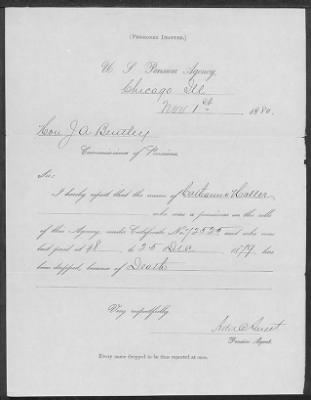 (PENSIONER DROPPED.)
U S Pension Agency,
Chicago Ill
Nov 1st 1880.
Hon J A Bentley
Commissioner of Pensions.
Sir:
I hereby report that the name of Haller
who was a pensioner on the rolls
of this Agency, under Certificate No 12525 and who was
last paid at $8 to 25 Dec 1879, has
been dropped, because of Death
Very respectfully,
Ada C Sweet
Pension Agent.
Every name dropped to be thus reported at once.